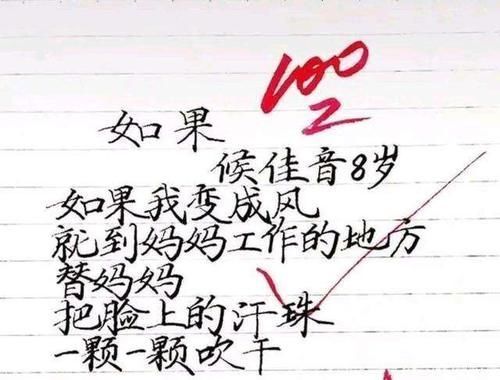 100
如果
候佳音8岁
如果我变成风
就到妈妈工作的地方
替妈妈
把脸上的汗珠
一颗一颗吹干